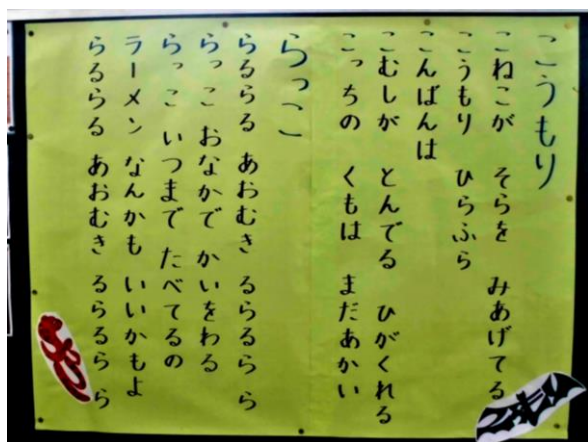 こうもり
こねこが そらを みあげてる
こうもり ひらふら
こんばんは
こむしが とんでる ひがくれる
こっちの くもは まだあかい
らっこ
らるらる あおむき るらるら ら
らっこ おなかで かいをわる
らっこ いつまで たべてるの
ラーメン なんかも いいかもよ
らるらる あおむき るらるら ら